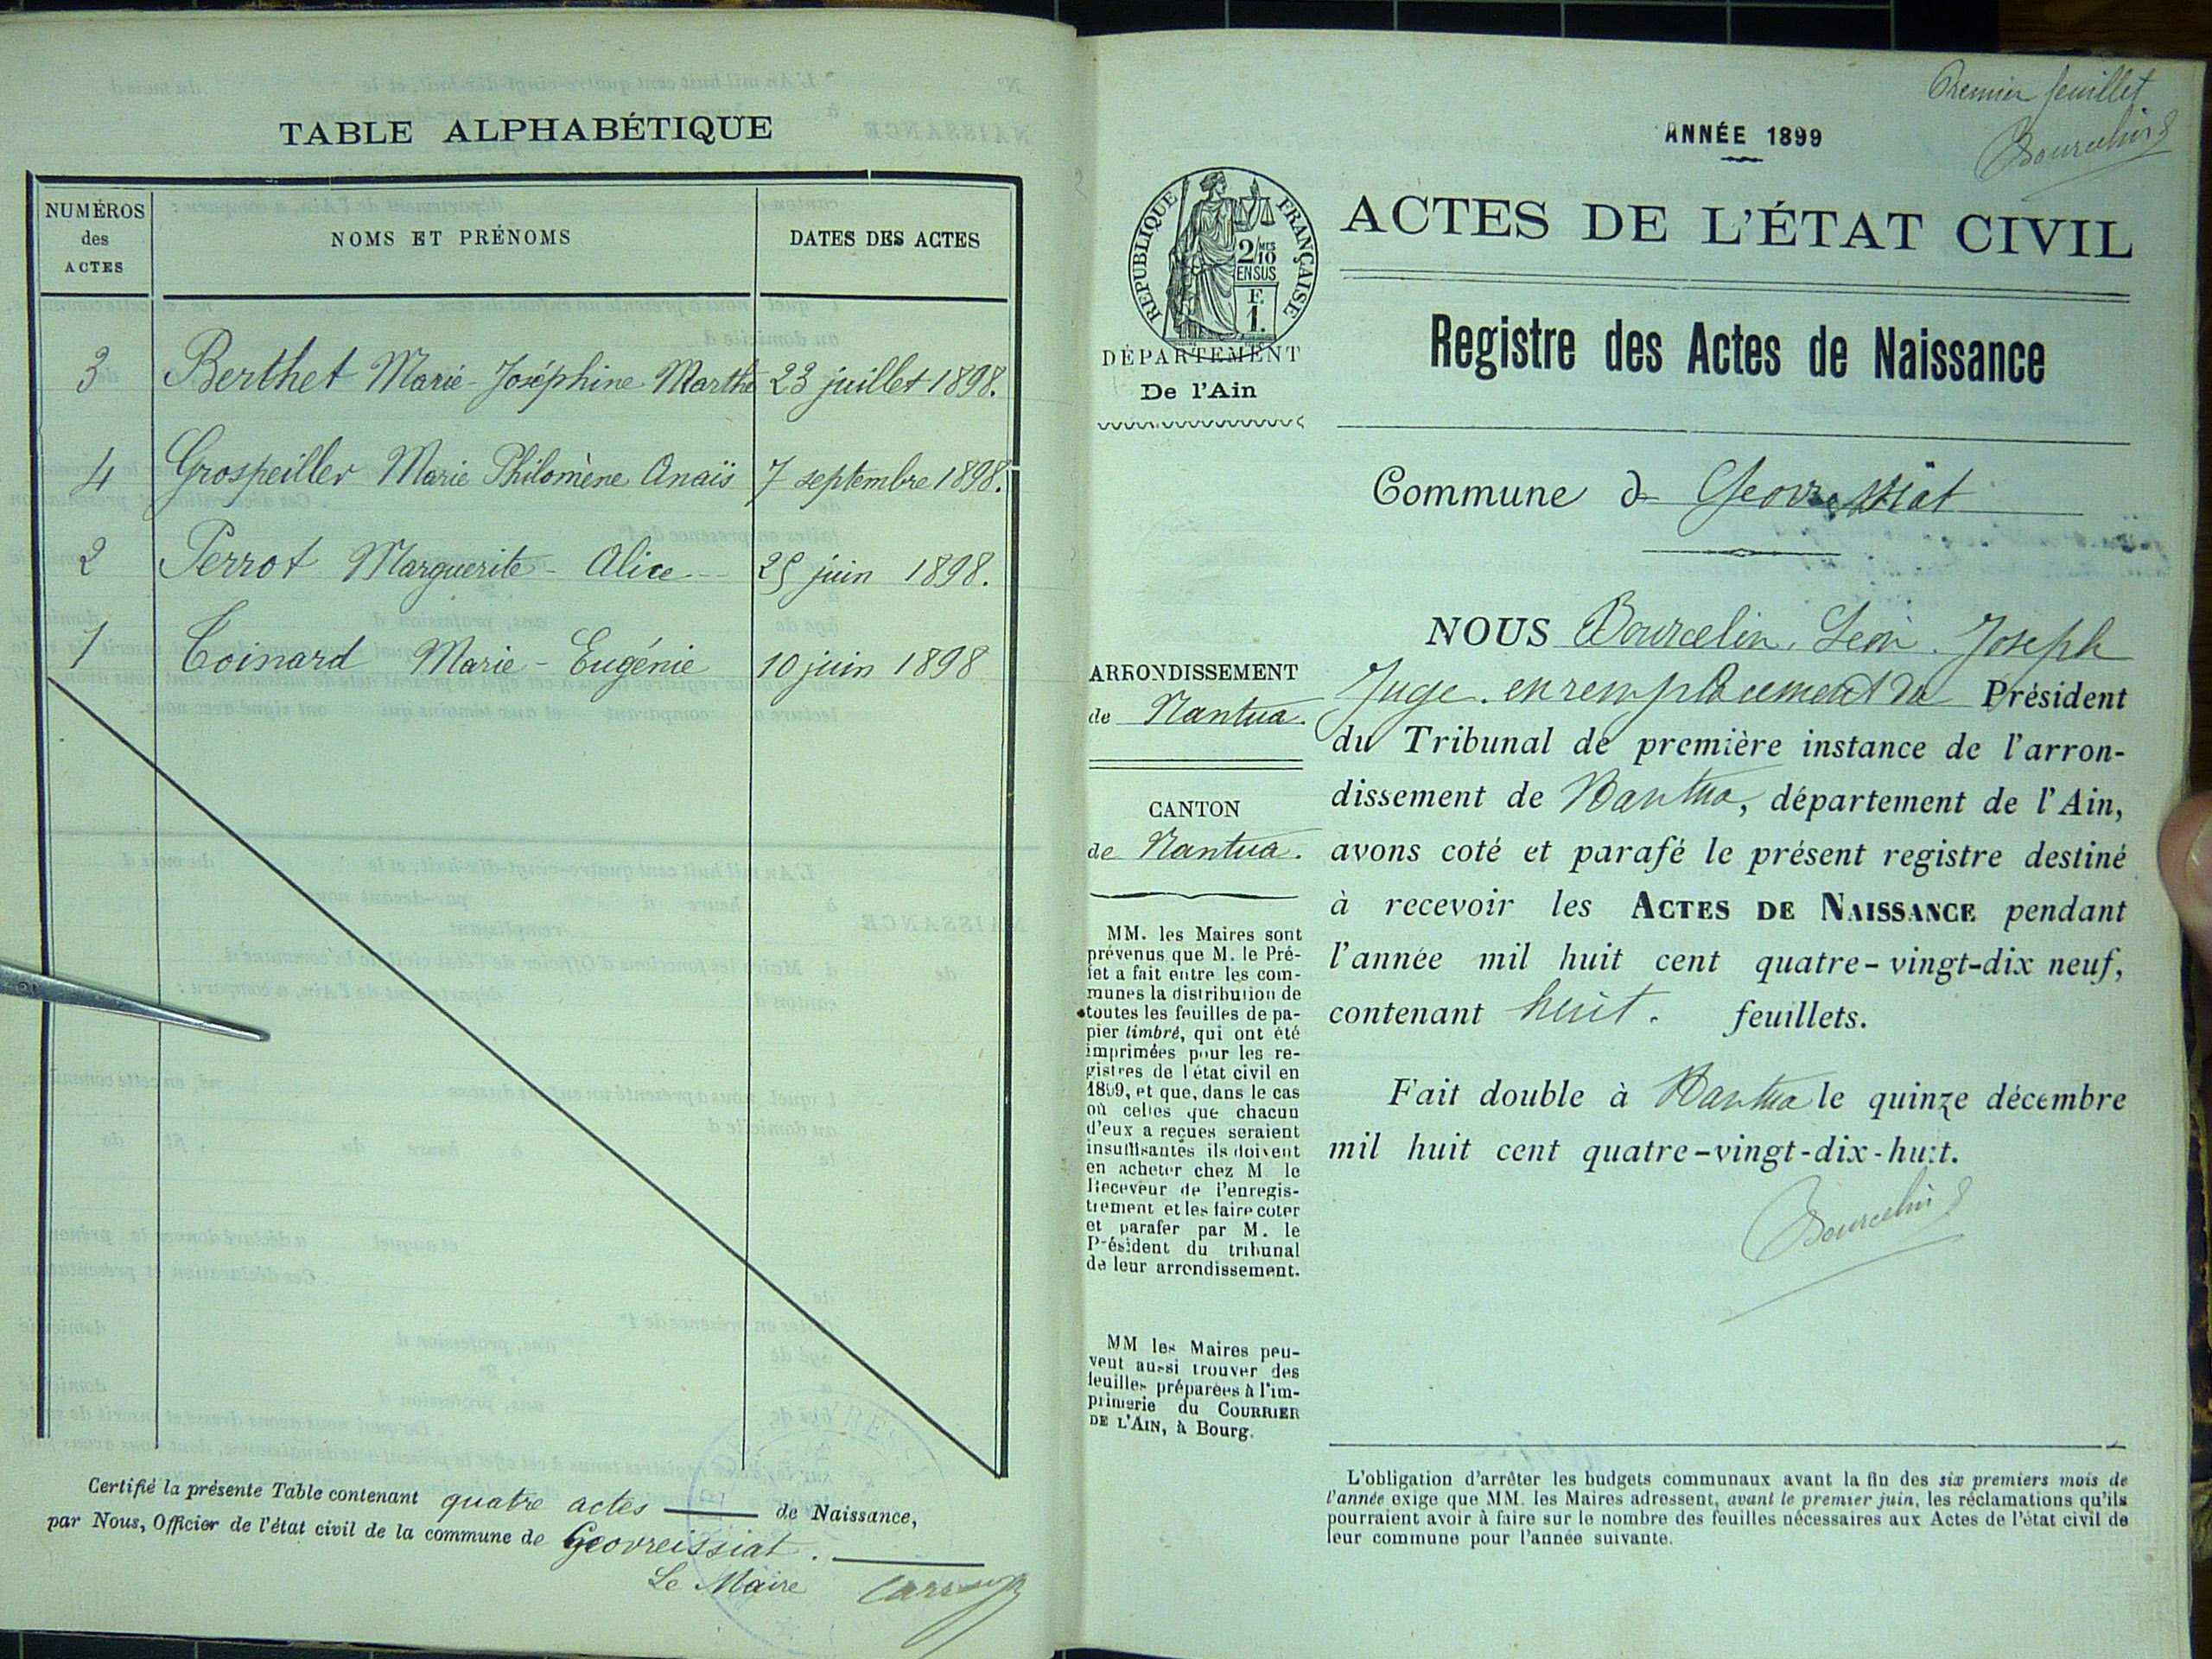 TABLE ALPHABÉTIQUE
NUMÉROS des ACTES
NOMS ET PRÉNOMS
DATES DES ACTES
3 Berthet Marie-Joséphine Marthe 23 juillet 1898.
4 Grospeiller Marie Philomène Anaïs 7 septembre 1898.
2 Perrot Marguerite - Alice 25 juin 1898.
1 Coinard Marie - Eugénie 10 juin 1898
Certifié la présente Table contenant quatre actes de Naissance,
par Nous, Officier de l'état civil de la commune de Geovreissiat.
Le Maire
Premier feuillet
Bourcelin
ANNÉE 1899
RÉPUBLIQUE FRANÇAISE
2/10 MES
EN SUS
F.
1.
ACTES DE L'ÉTAT CIVIL
DÉPARTEMENT
De l'Ain
Registre des Actes de Naissance
Commune d Geovressiat
ARRONDISSEMENT
de Nantua.
CANTON
de Nantua.
MM. les Maires sont
prévenus que M. le Pré-
fet a fait entre les com-
munes la distribution de
toutes les feuilles de pa-
pier timbré, qui ont été
imprimées pour les re-
gistres de l'état civil en
1899, et que, dans le cas
où celles que chacun
d'eux a reçues seraient
insuffisantes ils doivent
en acheter chez M le
Receveur de l'enregis-
trement et les faire coter
et parafer par M. le
Président du tribunal
de leur arrondissement.
MM les Maires peu-
vent aussi trouver des
feuilles préparées à l'im-
primerie du COURRIER
DE L'AIN, à Bourg.
NOUS Bourcelin, Léon. Joseph
Juge. en remplacement du Président
du Tribunal de première instance de l'arron-
dissement de Nantua, département de l'Ain,
avons coté et parafé le présent registre destiné
à recevoir les ACTES DE NAISSANCE pendant
l'année mil huit cent quatre-vingt-dix neuf,
contenant huit. feuillets.
Fait double à Nantua le quinze décembre
mil huit cent quatre-vingt-dix-huit.
Bourcelin
L'obligation d'arrêter les budgets communaux avant la fin des six premiers mois de
l'année exige que MM. les Maires adressent, avant le premier juin, les réclamations qu'ils
pourraient avoir à faire sur le nombre des feuilles nécessaires aux Actes de l'état civil de
leur commune pour l'année suivante.